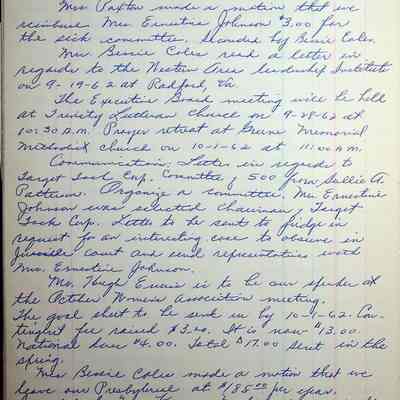 Mrs. Paxton made a motion that we
reimburse Mrs. Ernestine Johnson $3.00 for
the sick committee. Seconded by Bessie Coles.
Mrs. Bessie Coles read a letter in
regards to the Western Area leadership Institute
on 9-19-62 at Radford, Va.
The Executive Board meeting will be held
at Trinity Lutheran church on 9-28-62 at
10:30 A.M. Prayer retreat at Greene Memorial
Methodist church on 10-1-62 at 11:00 A.M.
Communication: Letter in regards to
Target Task Corp. Committee, 500 from Sallie A.
Patterson. Organize a committee. Mrs. Ernestine
Johnson was selected chairman, Target
Task Corp. Letter to be sent to judge in
request for an interesting case to observe in
Juvenile court and send representatives with
Mrs. Ernestine Johnson.
Mrs. Hugh Ennis is to be our speaker at
the October Women's Association meeting.
The goal sheet to be sent in by 10-1-62. Con-
tingent fee raised $3.00. It is now $13.00.
National dues $4.00. Total $17.00 sent in the
spring.
Mrs Bessie Coles made a motion that we
leave our Presbyterial at $185.00 per year.